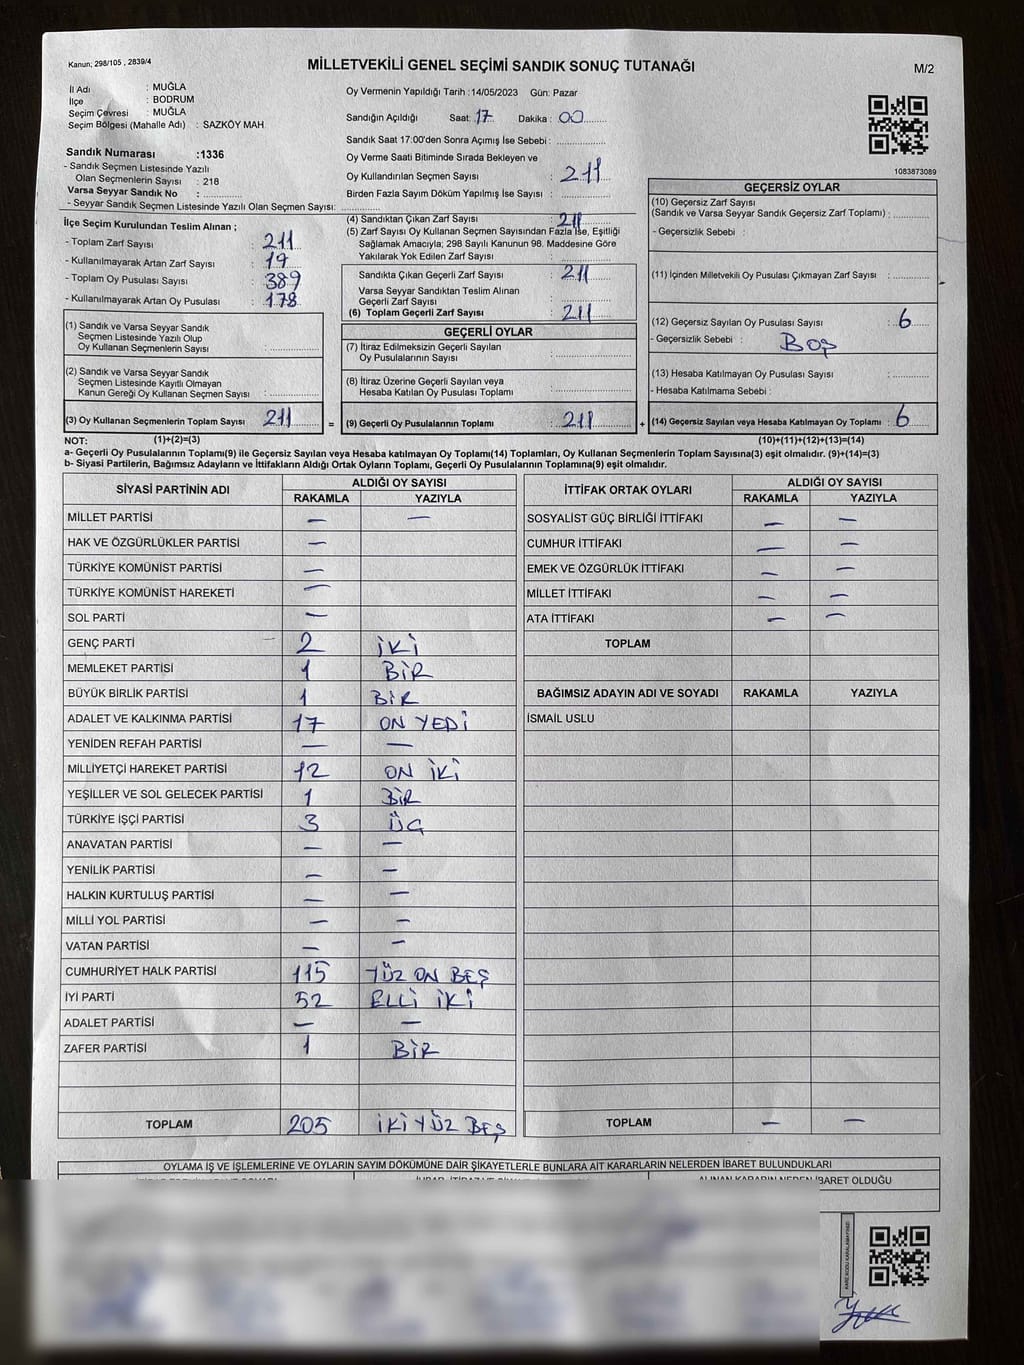 Kanun; 298/105 , 2839/4
MİLLETVEKİLİ GENEL SEÇİMİ SANDIK SONUÇ TUTANAĞI
M/2
İl Adı : MUĞLA
İlçe : BODRUM
Seçim Çevresi : MUĞLA
Seçim Bölgesi (Mahalle Adı) : SAZKÖY MAH
Sandık Numarası :1336
- Sandık Seçmen Listesinde Yazılı
Olan Seçmenlerin Sayısı : 218
Varsa Seyyar Sandık No :
- Seyyar Sandık Seçmen Listesinde Yazılı Olan Seçmen Sayısı:
Oy Vermenin Yapıldığı Tarih :14/05/2023 Gün: Pazar
Sandığın Açıldığı Saat: 17 Dakika : 00
Sandık Saat 17:00'den Sonra Açımış İse Sebebi :
Oy Verme Saati Bitiminde Sırada Bekleyen ve
Oy Kullandırılan Seçmen Sayısı : 211
Birden Fazla Sayım Döküm Yapılmış İse Sayısı :
1083873089
İlçe Seçim Kurulundan Teslim Alınan ;
- Toplam Zarf Sayısı : 211
- Kullanılmayarak Artan Zarf Sayısı : 19
- Toplam Oy Pusulası Sayısı : 389
- Kullanılmayarak Artan Oy Pusulası : 178
(1) Sandık ve Varsa Seyyar Sandık
Seçmen Listesinde Yazılı Olup
Oy Kullanan Seçmenlerin Sayısı :
(2) Sandık ve Varsa Seyyar Sandık
Seçmen Listesinde Kayıtlı Olmayan
Kanun Gereği Oy Kullanan Seçmen Sayısı :
(3) Oy Kullanan Seçmenlerin Toplam Sayısı : 211 =
(4) Sandıktan Çıkan Zarf Sayısı : 211
(5) Zarf Sayısı Oy Kullanan Seçmen Sayısından Fazla İse, Eşitliği
Sağlamak Amacıyla; 298 Sayılı Kanunun 98. Maddesine Göre
Yakılarak Yok Edilen Zarf Sayısı :
Sandıkta Çıkan Geçerli Zarf Sayısı : 211
Varsa Seyyar Sandıktan Teslim Alınan
Geçerli Zarf Sayısı :
(6) Toplam Geçerli Zarf Sayısı : 211
GEÇERLİ OYLAR
(7) İtiraz Edilmeksizin Geçerli Sayılan
Oy Pusulalarının Sayısı :
(8) İtiraz Üzerine Geçerli Sayılan veya
Hesaba Katılan Oy Pusulası Toplamı :
(9) Geçerli Oy Pusulalarının Toplamı : 211 +
GEÇERSİZ OYLAR
(10) Geçersiz Zarf Sayısı
(Sandık ve Varsa Seyyar Sandık Geçersiz Zarf Toplamı) :
- Geçersizlik Sebebi :
(11) İçinden Milletvekili Oy Pusulası Çıkmayan Zarf Sayısı :
(12) Geçersiz Sayılan Oy Pusulası Sayısı : 6
- Geçersizlik Sebebi : BOŞ
(13) Hesaba Katılmayan Oy Pusulası Sayısı :
- Hesaba Katılmama Sebebi :
(14) Geçersiz Sayılan veya Hesaba Katılmayan Oy Toplamı : 6
NOT: (1)+(2)=(3) (10)+(11)+(12)+(13)=(14)
a- Geçerli Oy Pusulalarının Toplamı(9) ile Geçersiz Sayılan veya Hesaba katılmayan Oy Toplamı(14) Toplamları, Oy Kullanan Seçmenlerin Toplam Sayısına(3) eşit olmalıdır. (9)+(14)=(3)
b- Siyasi Partilerin, Bağımsız Adayların ve İttifakların Aldığı Ortak Oyların Toplamı, Geçerli Oy Pusulalarının Toplamına(9) eşit olmalıdır.
SİYASİ PARTİNİN ADI ALDIĞI OY SAYISI
RAKAMLA YAZIYLA
MİLLET PARTİSİ — —
HAK VE ÖZGÜRLÜKLER PARTİSİ —
TÜRKİYE KOMÜNİST PARTİSİ —
TÜRKİYE KOMÜNİST HAREKETİ —
SOL PARTİ —
GENÇ PARTİ 2 İKİ
MEMLEKET PARTİSİ 1 BİR
BÜYÜK BİRLİK PARTİSİ 1 BİR
ADALET VE KALKINMA PARTİSİ 17 ON YEDİ
YENİDEN REFAH PARTİSİ — —
MİLLİYETÇİ HAREKET PARTİSİ 12 ON İKİ
YEŞİLLER VE SOL GELECEK PARTİSİ 1 BİR
TÜRKİYE İŞÇİ PARTİSİ 3 ÜÇ
ANAVATAN PARTİSİ — —
YENİLİK PARTİSİ — —
HALKIN KURTULUŞ PARTİSİ — —
MİLLİ YOL PARTİSİ — —
VATAN PARTİSİ — —
CUMHURİYET HALK PARTİSİ 115 YÜZ ON BEŞ
İYİ PARTİ 52 ELLİ İKİ
ADALET PARTİSİ — —
ZAFER PARTİSİ 1 BİR
TOPLAM 205 İKİ YÜZ BEŞ
İTTİFAK ORTAK OYLARI ALDIĞI OY SAYISI
RAKAMLA YAZIYLA
SOSYALİST GÜÇ BİRLİĞİ İTTİFAKI — —
CUMHUR İTTİFAKI — —
EMEK VE ÖZGÜRLÜK İTTİFAKI — —
MİLLET İTTİFAKI — —
ATA İTTİFAKI — —
TOPLAM
BAĞIMSIZ ADAYIN ADI VE SOYADI RAKAMLA YAZIYLA
İSMAİL USLU
TOPLAM — —
OYLAMA İŞ VE İŞLEMLERİNE VE OYLARIN SAYIM DÖKÜMÜNE DAİR ŞİKAYETLERLE BUNLARA AİT KARARLARIN NELERDEN İBARET BULUNDUKLARI
ALINAN KARARIN NEDEN İBARET OLDUĞU